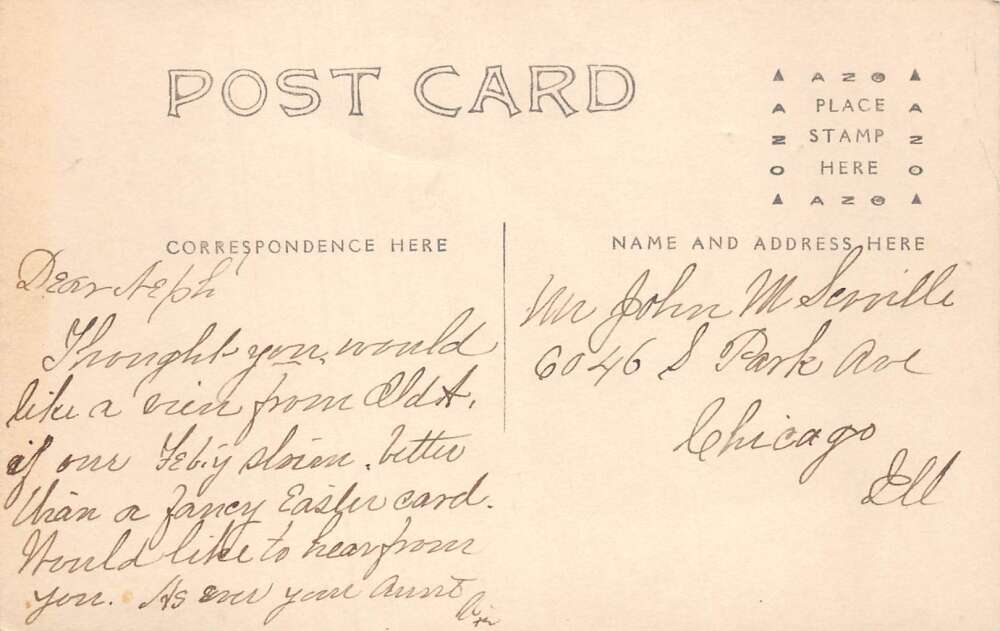 POST CARD
▲ A Z O ▲
A PLACE A
Z STAMP Z
O HERE O
▲ A Z O ▲
CORRESPONDENCE HERE
NAME AND ADDRESS HERE
Dear Neph'
Thought you would
like a view from
of our Feb'y storm, better
than a fancy Easter card.
Would like to hear from
you. As ever your Aunt
Mr John M
6046 S Park Ave
Chicago
Ill